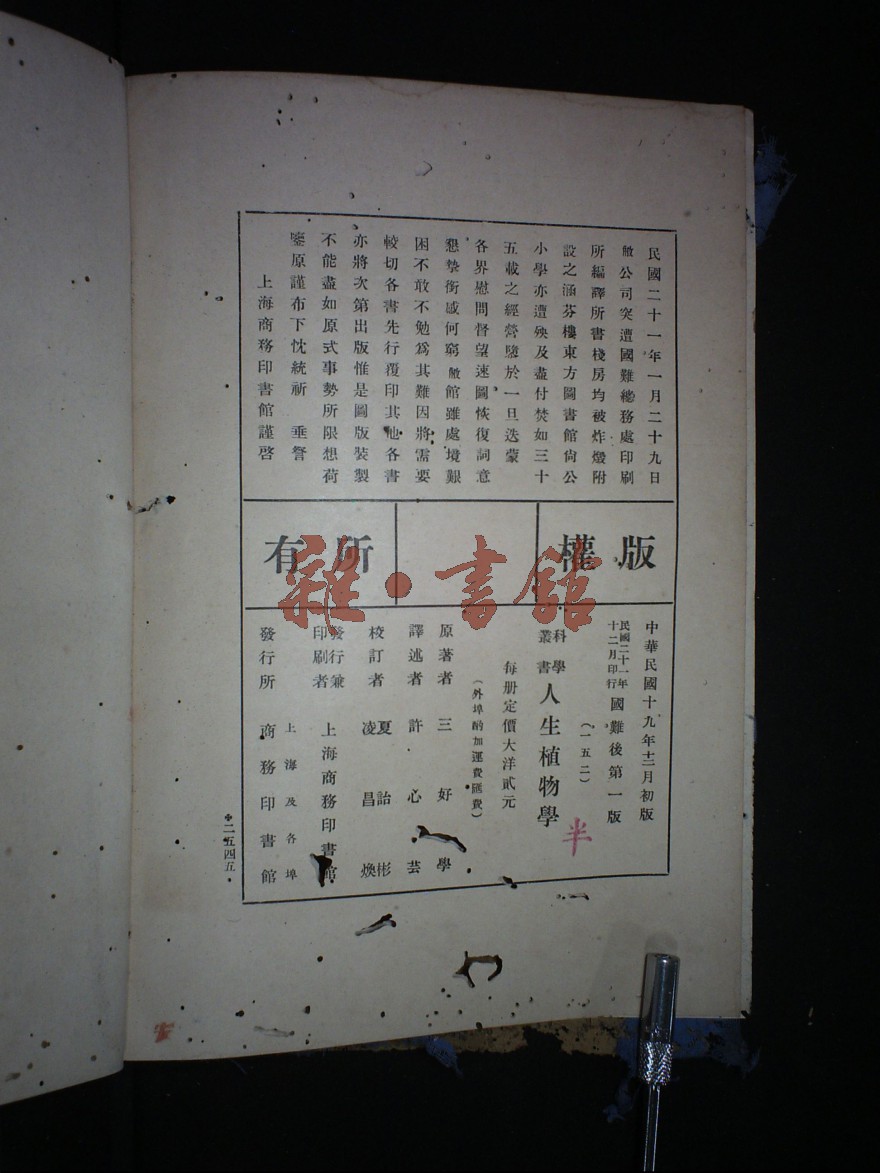 民國二十一年一月二十九日
敝公司突遭國難總務處印刷
所編譯所書棧房均被炸燬附
設之涵芬樓東方圖書館尚公
小學亦遭殃及盡付焚如三十
五載之經營隳於一旦迭蒙
各界慰問督望速圖恢復詞意
懇摯銜感何窮敝館雖處境艱
困不敢不勉爲其難因將需要
較切各書先行覆印其他各書
亦將次第出版惟是圖版裝製
不能盡如原式事勢所限想荷
鑒原謹布下忱統祈 垂詧
上海商務印書館謹啓
版權所有
雜·書館
中華民國十九年十二月初版
民國二十一年十二月印行 國難後第一版
(一五二)
科學叢書 人生植物學
半
每册定價大洋貳元
(外埠酌加運費匯費)
原著者 三好學
譯述者 許心芸
校訂者 夏詒彬 凌昌煥
發行兼印刷者 上海商務印書館
發行所 上海及各埠 商務印書館
*二五四五·